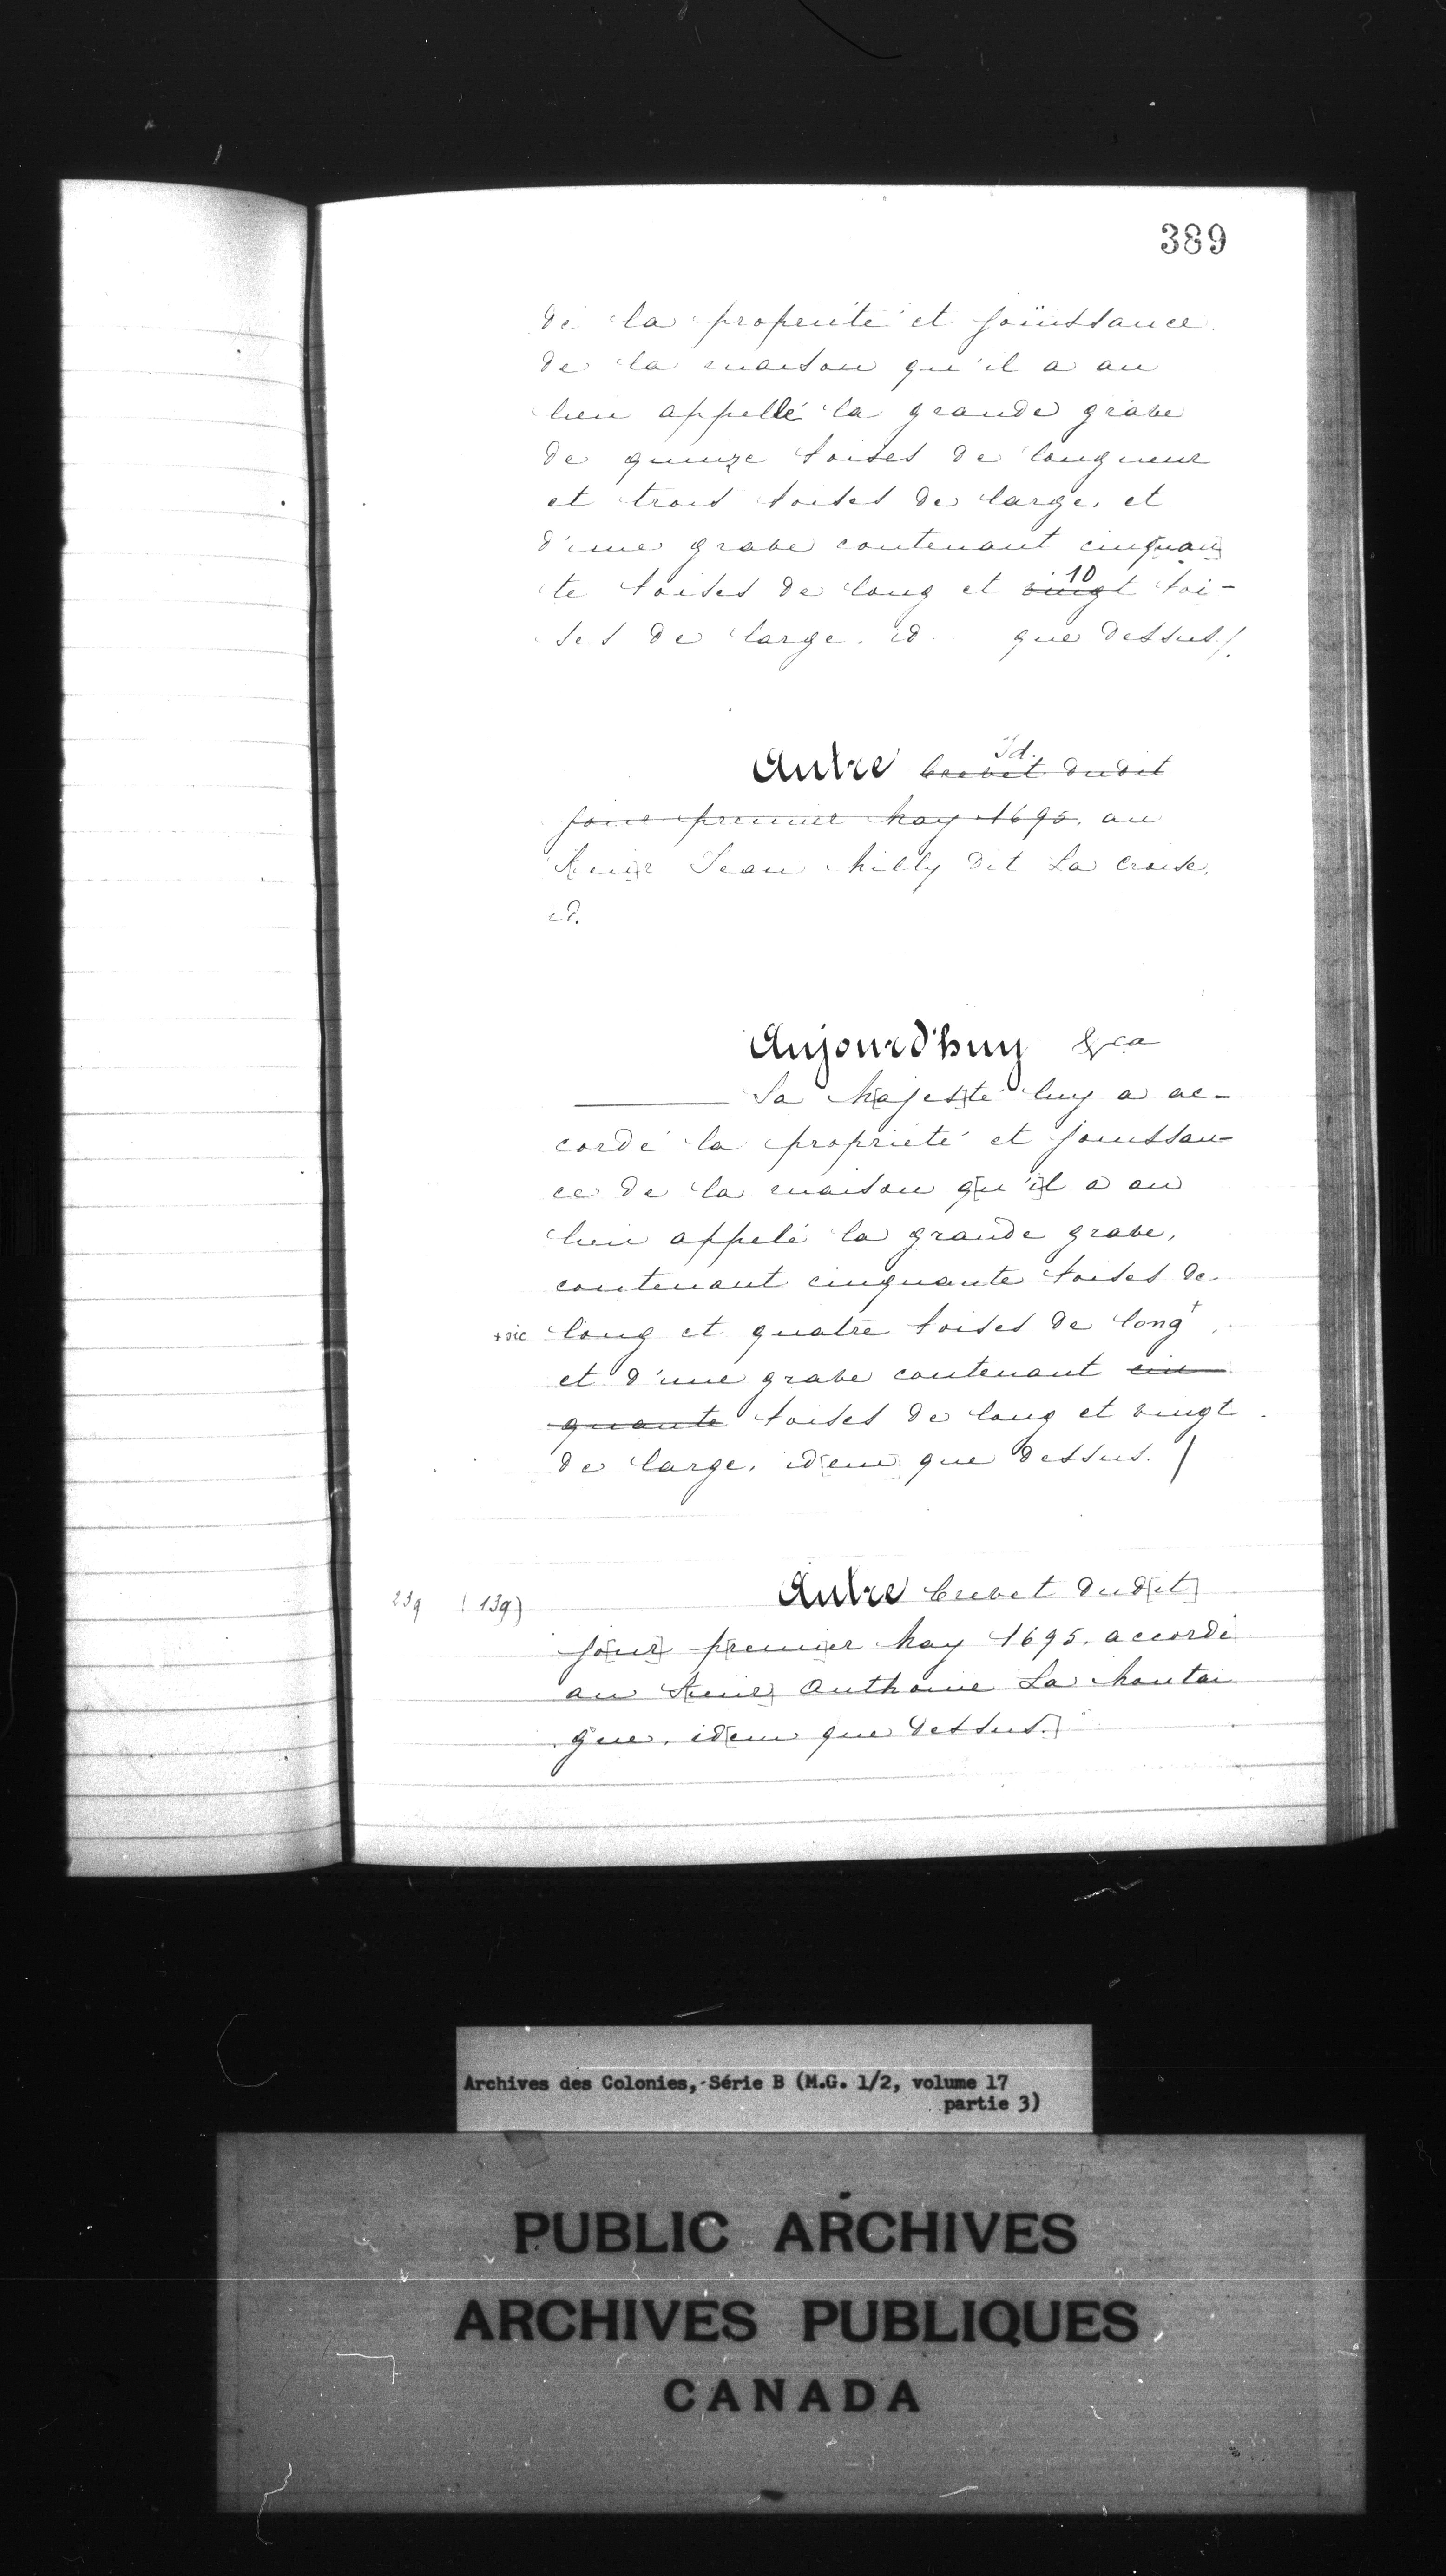 389
de la proprieté et joüissance
de la maison qu'il a au
lieu appellé la grande grave
de quinze toises de longueur
et trois toises de large, et
d'une grave contenant cinq[uan]
te toises de long et vingt 10 toi-
ses de large. id. que dessus/.
Autre brevet dudit Id.
jour premier May 1695. au
S[ieu]r Jean Milly dit La Croix.
id.
Aujourd'huy &ca
Sa M[ajes]té luy a ac-
cordé la propriété et jouissan-
ce de la maison q[u'i]l a au
lieu appelé la grande grave,
contenant cinquante toises de
+sic long et quatre toises de long+,
et d'une grave contenant cin
quante toises de long et vingt
de large. id[em] que dessus. /
239 ! 139)
Autre brevet dud[it]
jo[ur] p[remi]er May 1695. accordé
au S[ieur] Anthoine La Montai
gne. id[em que dessus.]
Archives des Colonies, Série B (M.G. 1/2, volume 17
partie 3)
PUBLIC ARCHIVES
ARCHIVES PUBLIQUES
CANADA